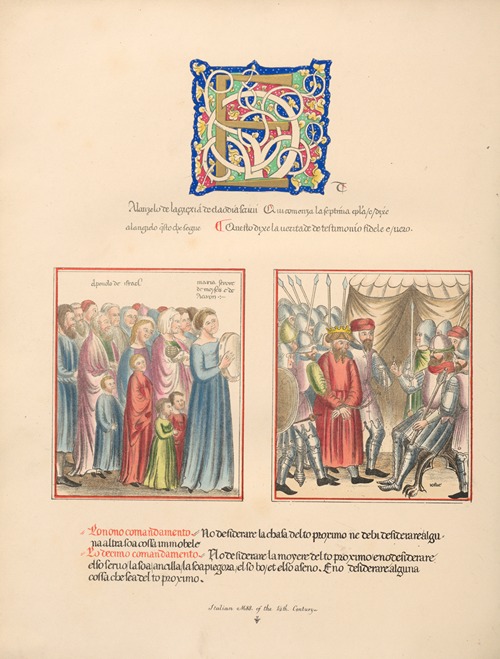 E
Alanzelo de la giexia de
Qui comenza la septima epla /e/ dixe
alangielo qsto che segue ¶ Questo dixe la verita de de testimonio fidele e/uero.
el puovolo de israel
maria sorore
de moyses e de
Aaron
Lo nono comandamento No desiderare la chasa del to proximo ne debi desiderare algu-
na altra soa cossa immobele
Lo decimo comandamento No desiderare la moyere del to proximo/e no desiderare
el so seruo/la soa ancilla/la soa piegora/el so bo/et el so aseno. E no desiderare alguna
cossa che sea del to proximo.
Italian MSS. of the 14th Century.